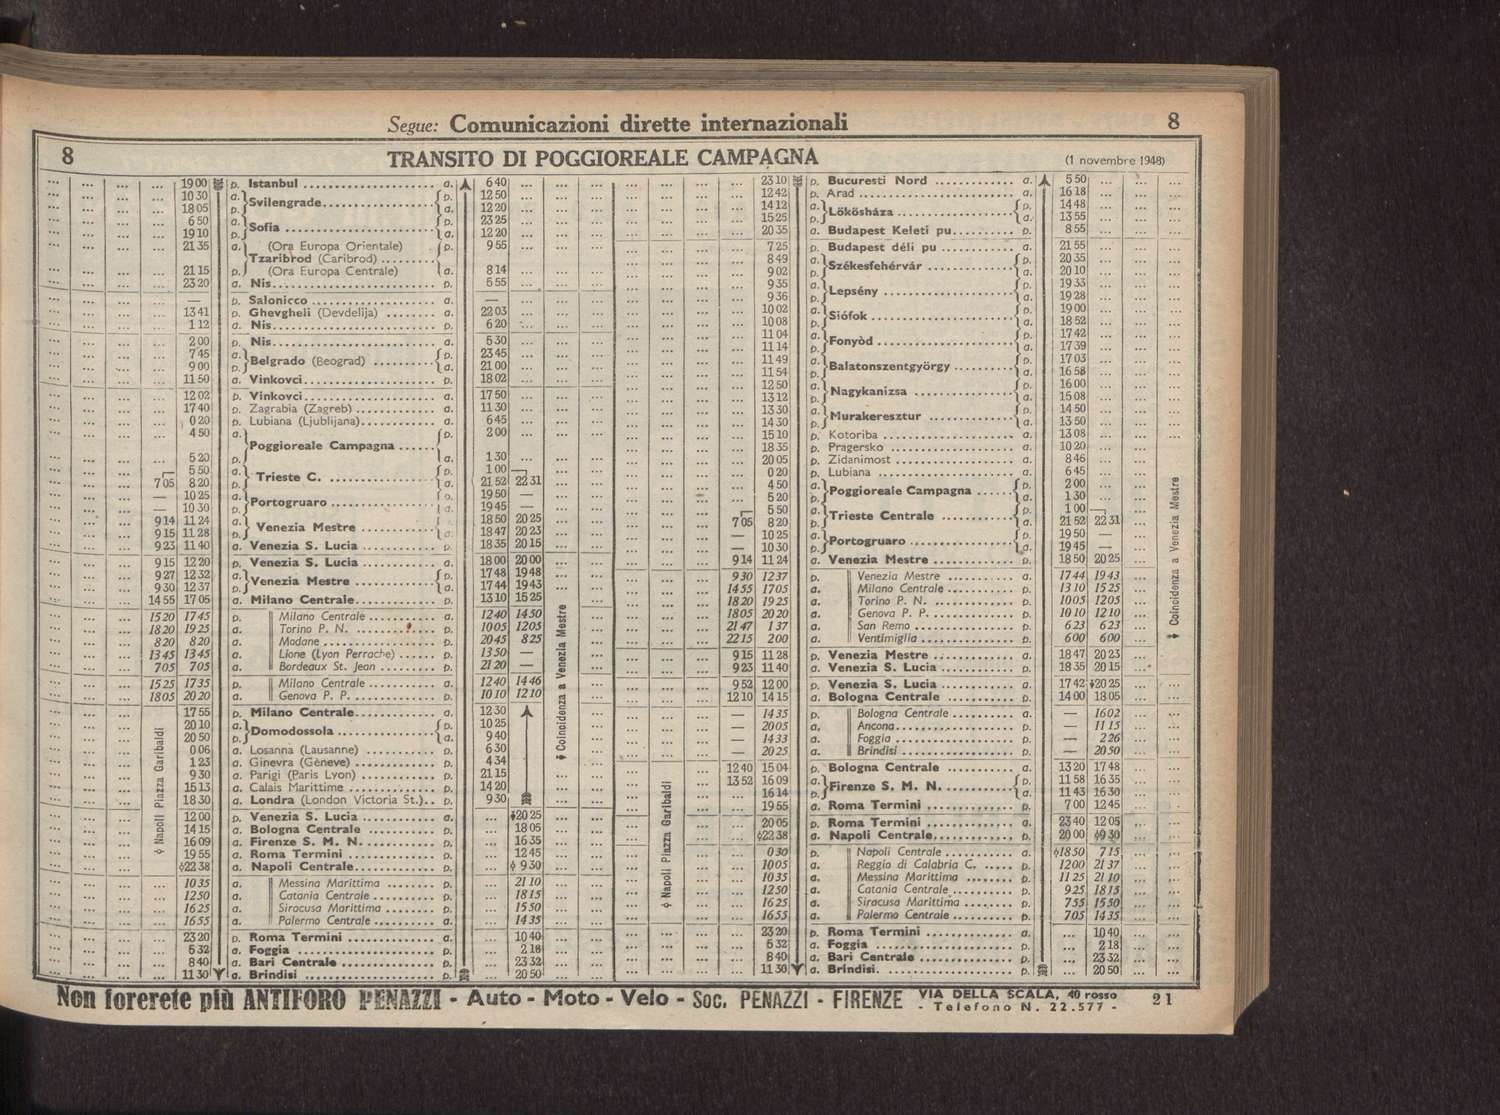 Segue: Comunicazioni dirette internazionali 8
8 TRANSITO DI POGGIOREALE CAMPAGNA (1 novembre 1948)
19 00 p. Istanbul a. 6 40
10 30 a. Svilengrade p. 12 50
18 05 p. a. 12 20
6 50 a. Sofia p. 23 25
19 10 p. a. 12 20
21 35 a. (Ora Europa Orientale) p. 9 55
Tzaribrod (Caribrod)
21 15 p. (Ora Europa Centrale) a. 8 14
23 20 a. Nis p. 5 55
— p. Salonicco a. —
13 41 p. Ghevgheli (Devdelija) a. 22 03
1 12 a. Nis p. 6 20
2 00 p. Nis a. 5 30
7 45 a. Belgrado (Beograd) p. 23 45
9 00 p. a. 21 00
11 50 a. Vinkovci p. 18 02
12 02 p. Vinkovci a. 17 50
17 40 p. Zagrabia (Zagreb) a. 11 30
0 20 p. Lubiana (Ljublijana) a. 6 45
4 50 a. p. 2 00
Poggioreale Campagna
5 20 p. a. 1 30
5 50 a. Trieste C. p. 1 00
7 05 8 20 p. a. 21 52 22 31
— 10 25 a. Portogruaro p. 19 50 —
— 10 30 p. a. 19 45 —
9 14 11 24 a. Venezia Mestre p. 18 50 20 25
9 15 11 28 p. a. 18 47 20 23
9 23 11 40 a. Venezia S. Lucia p. 18 35 20 15
9 15 12 20 p. Venezia S. Lucia a. 18 00 20 00
9 27 12 32 a. Venezia Mestre p. 17 48 19 48
9 30 12 37 p. a. 17 44 19 43
14 55 17 05 a. Milano Centrale p. 13 10 15 25
15 20 17 45 p. Milano Centrale a. 12 40 14 50
18 20 19 25 a. Torino P. N. p. 10 05 12 05
8 20 8 20 a. Modane p. 20 45 8 25
13 45 13 45 a. Lione (Lyon Perrache) p. 13 50 —
7 05 7 05 a. Bordeaux St. Jean p. 21 20 —
15 25 17 35 p. Milano Centrale a. 12 40 14 46
18 05 20 20 a. Genova P. P. p. 10 10 12 10
17 55 p. Milano Centrale a. 12 30
20 10 a. Domodossola p. 10 25
20 50 p. a. 9 40
0 06 a. Losanna (Lausanne) p. 6 30
1 23 a. Ginevra (Gèneve) p. 4 34
9 30 a. Parigi (Paris Lyon) p. 21 15
15 13 a. Calais Marittime p. 14 20
18 30 a. Londra (London Victoria St.) p. 9 30
12 00 p. Venezia S. Lucia a. 20 25
14 15 a. Bologna Centrale p. 18 05
16 09 a. Firenze S. M. N. p. 16 35
19 55 a. Roma Termini p. 12 45
22 38 a. Napoli Centrale p. 9 30
10 35 a. Messina Marittima p. 21 10
12 50 a. Catania Centrale p. 18 15
16 25 a. Siracusa Marittima p. 15 50
16 55 a. Palermo Centrale a. 14 35
23 20 p. Roma Termini a. 10 40
5 32 a. Foggia p. 2 18
8 40 a. Bari Centrale p. 23 32
11 30 a. Brindisi p. 20 50
Napoli Piazza Garibaldi
Coincidenza a Venezia Mestre
23 10 p. Bucuresti Nord a. 5 50
12 42 p. Arad a. 16 18
14 12 a. Lökösháza p. 14 48
15 25 p. a. 13 55
20 35 a. Budapest Keleti pu. p. 8 55
7 25 p. Budapest déli pu a. 21 55
8 49 a. Székesfehérvár p. 20 35
9 02 p. a. 20 10
9 35 a. Lepsény p. 19 33
9 36 p. a. 19 28
10 02 a. Siófok p. 19 00
10 08 p. a. 18 52
11 04 a. Fonyòd p. 17 42
11 14 p. a. 17 39
11 49 a. Balatonszentgyörgy p. 17 03
11 54 p. a. 16 58
12 50 a. Nagykanizsa p. 16 00
13 12 p. a. 15 08
13 30 a. Murakeresztur p. 14 50
14 30 p. a. 13 50
15 10 p. Kotoriba a. 13 08
18 35 p. Pragersko a. 10 20
20 05 p. Zidanimost a. 8 46
0 20 p. Lubiana a. 6 45
4 50 a. Poggioreale Campagna p. 2 00
5 20 p. a. 1 30
5 50 a. Trieste Centrale p. 1 00
7 05 8 20 p. a. 21 52 22 31
— 10 25 a. Portogruaro p. 19 50 —
— 10 30 p. a. 19 45 —
9 14 11 24 a. Venezia Mestre p. 18 50 20 25
9 30 12 37 p. Venezia Mestre a. 17 44 19 43
14 55 17 05 a. Milano Centrale p. 13 10 15 25
18 20 19 25 a. Torino P. N. p. 10 05 12 05
18 05 20 20 a. Genova P. P. p. 10 10 12 10
21 47 1 37 a. San Remo p. 6 23 6 23
22 15 2 00 a. Ventimiglia p. 6 00 6 00
9 15 11 28 p. Venezia Mestre a. 18 47 20 23
9 23 11 40 a. Venezia S. Lucia p. 18 35 20 15
9 52 12 00 p. Venezia S. Lucia a. 17 42 20 25
12 10 14 15 a. Bologna Centrale p. 14 00 18 05
— 14 35 p. Bologna Centrale a. — 16 02
— 20 05 a. Ancona p. — 11 15
— 14 33 a. Foggia p. — 2 26
— 20 25 a. Brindisi p. — 20 50
12 40 15 04 p. Bologna Centrale a. 13 20 17 48
13 52 16 09 a. Firenze S. M. N. p. 11 58 16 35
16 14 p. a. 11 43 16 30
19 55 a. Roma Termini p. 7 00 12 45
20 05 p. Roma Termini a. 23 40 12 05
22 38 a. Napoli Centrale p. 20 00 9 30
0 30 p. Napoli Centrale a. 18 50 7 15
10 05 a. Reggio di Calabria C. p. 12 00 21 37
10 35 a. Messina Marittima p. 11 25 21 10
12 50 a. Catania Centrale p. 9 25 18 15
16 25 a. Siracusa Marittima p. 7 55 15 50
16 55 a. Palermo Centrale p. 7 05 14 35
23 20 p. Roma Termini a. 10 40
5 32 a. Foggia p. 2 18
8 40 a. Bari Centrale p. 23 32
11 30 a. Brindisi. p. 20 50
Napoli Piazza Garibaldi
Coincidenza a Venezia Mestre
Non forerete più ANTIFORO PENAZZI - Auto - Moto - Velo - Soc. PENAZZI - FIRENZE VIA DELLA SCALA, 40 rosso
- Telefono N. 22.577 -
21